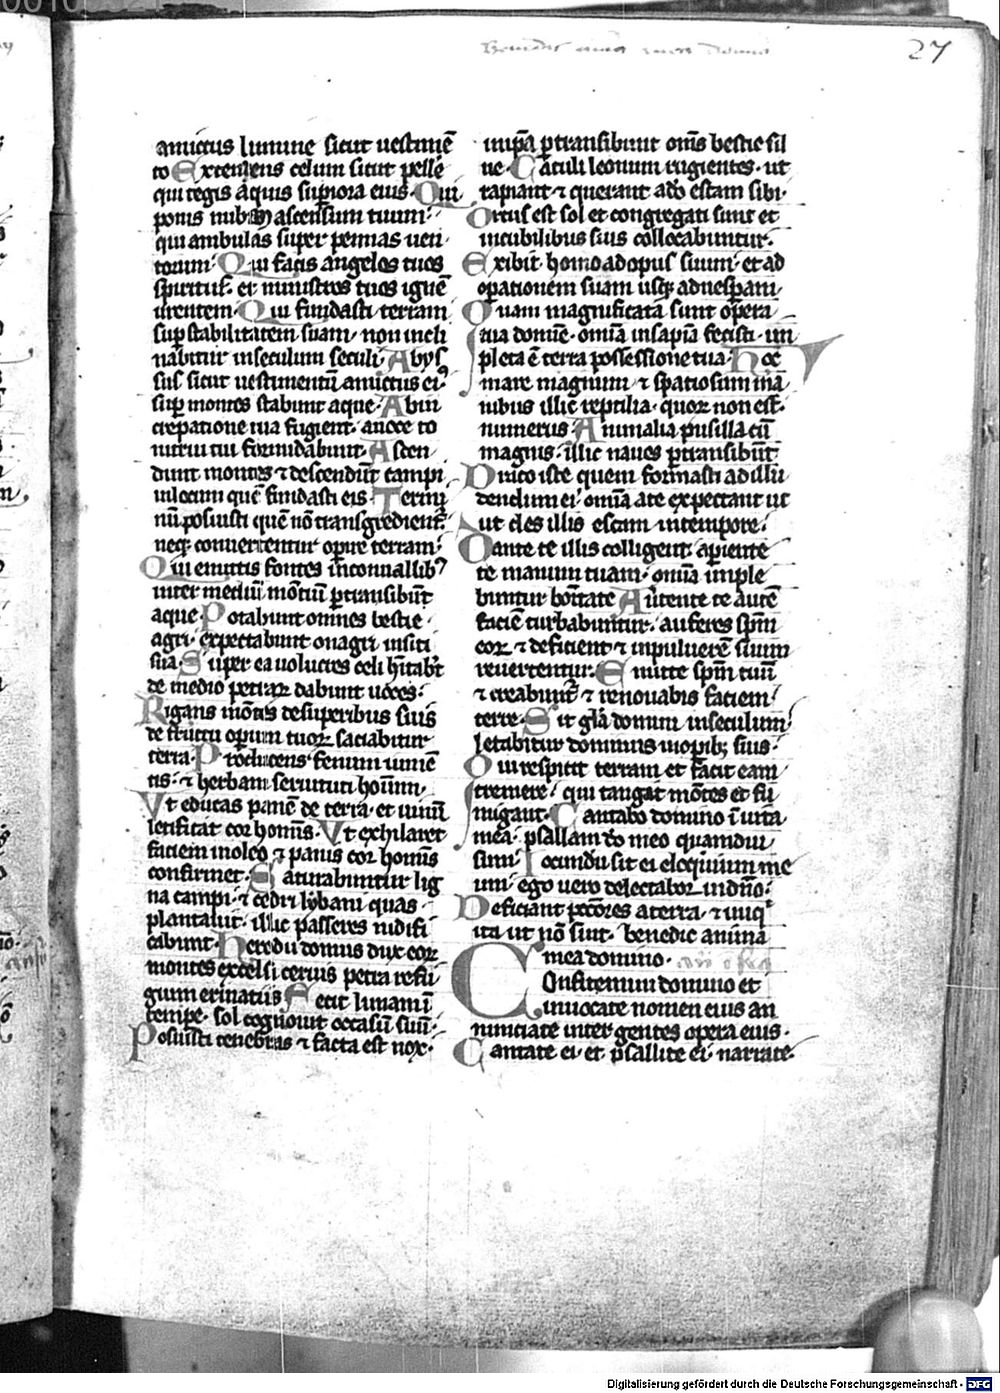 27
amictus lumine sicut uestimē
to Extendens celum sicut pellē
qui tegis aquis supiora eius Qui
ponis nubē ascensum tuum
qui ambulas super pennas uen
torum Qui facis angelos tuos
spiritus et ministros tuos ignē
urentem Qui fundasti terram
sup stabilitatem suam non incli
nabitur inseculum seculi Abys
sus sicut uestimentū amictus eiꝰ
sup montes stabunt aque Abin
crepatione tua fugient auoce to
nitrui tui formidabunt Ascen
dunt montes ⁊ descendūt campi
inlocum quē fundasti eis Termi
nū posuisti quē nō transgredient᷑
neqꝫ conuertentur opire terram
Qui emittis fontes inconuallibꝰ
inter mediū mōtiū ptransibūt
aque Potabunt omnes bestie
agri expectabunt onagri insiti
sua Super ea uolucres celi hītabūt
de medio petraꝝ dabunt uoces
Rigans mōtes desuperibus suis
de fructu operum tuoꝝ saciabitur
terra Producens fenum iumē
tis ⁊ herbam seruituti hoīum
Vt educas panē de terra et uinū
letificat cor homīs Vt exhilaret
faciem inoleo ⁊ panis cor homīs
confirmet Saturabuntur lig
na campi ⁊ cedri lybani quas
plantauit illic passeres nidifi
cabunt Herodii domus dux eoꝝ
montes excelsi ceruis petra refu
gium erinatiis Fecit lunam ī
tempe sol cognouit occasū suū
Posuisti tenebras ⁊ facta est nox
inipā ptransibunt omīs bestie sil
ue Catuli leonum rugientes ut
rapiant ⁊ querant ado escam sibi
Ortus est sol et congregati sunt et
incubilibus suis collocabuntur
Exibit homo adopus suum et ad
opationem suam usqꝫ aduespam
Quam magnificata sunt opera
tua domīe omīa insapīa fecisti im
pleta ē terra possessione tua Hoc
mare magnum ⁊ spatiosum ma
nibus illic reptilia quoꝝ non est
numerus Animalia pusilla cū
magnis illic naues ptransibūt
Draco iste quem formasti adillu
dendum ei omīa ate expectant ut
ut des illis escam intempore
Dante te illis colligent apiente
te manum tuam omīa imple
buntur bonītate Auertente te autē
faciē turbabuntur auferes spm̄
eoꝝ ⁊ deficient ⁊ inpulucrē suum
reuertentur Emitte spm̄ tuū
⁊ creabunt᷑ ⁊ renouabis faciem
terre Sit glā domini inseculum
letabitur dominus inopibꝫ suis
Qui respicit terram et facit eam
tremere qui tangit mōtes et fu
migant Cantabo domino ī uita
mea psallam do meo quamdiu
sum Iocundū sit ei eloquium me
um ego uero delectabor indn̄o
Deficiant pctōres aterra ⁊ iniq
ita ut nō sint benedic anima
mea domino
Confitemini domino et
inuocate nomen eius an
nunciate inter gentes opera eius
Cantate ei et psallite ei narrate
Digitalisierung gefördert durch die Deutsche Forschungsgemeinschaft - DFG